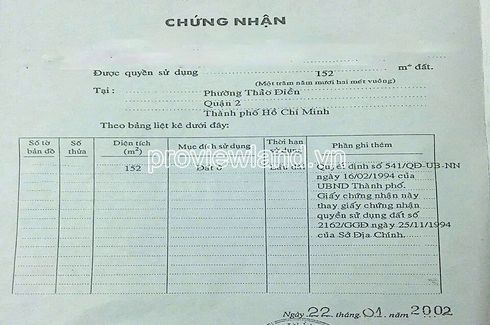 CHỨNG NHẬN
Được quyền sử dụng 152 m² đất.
(Một trăm năm mươi hai mét vuông)
Tại : Phường Thảo Điền
Quận 2
Thành phố Hồ Chí Minh
Theo bảng liệt kê dưới đây:
Số tờ bản đồ
Số thửa
Diện tích (m²)
Mục đích sử dụng
Thời hạn sử dụng
Phần ghi thêm
152
Đất ở
Lâu dài
Quyết định số 541/QĐ-UB-NN
ngày 16/02/1994 của
UBND Thành phố.
Giấy chứng nhận này
thay giấy chứng nhận
quyền sử dụng đất số
2162/GGĐ ngày 25/11/1994
của Sở Địa Chính.
proviewland.vn
Ngày 22 tháng 01 năm 2002